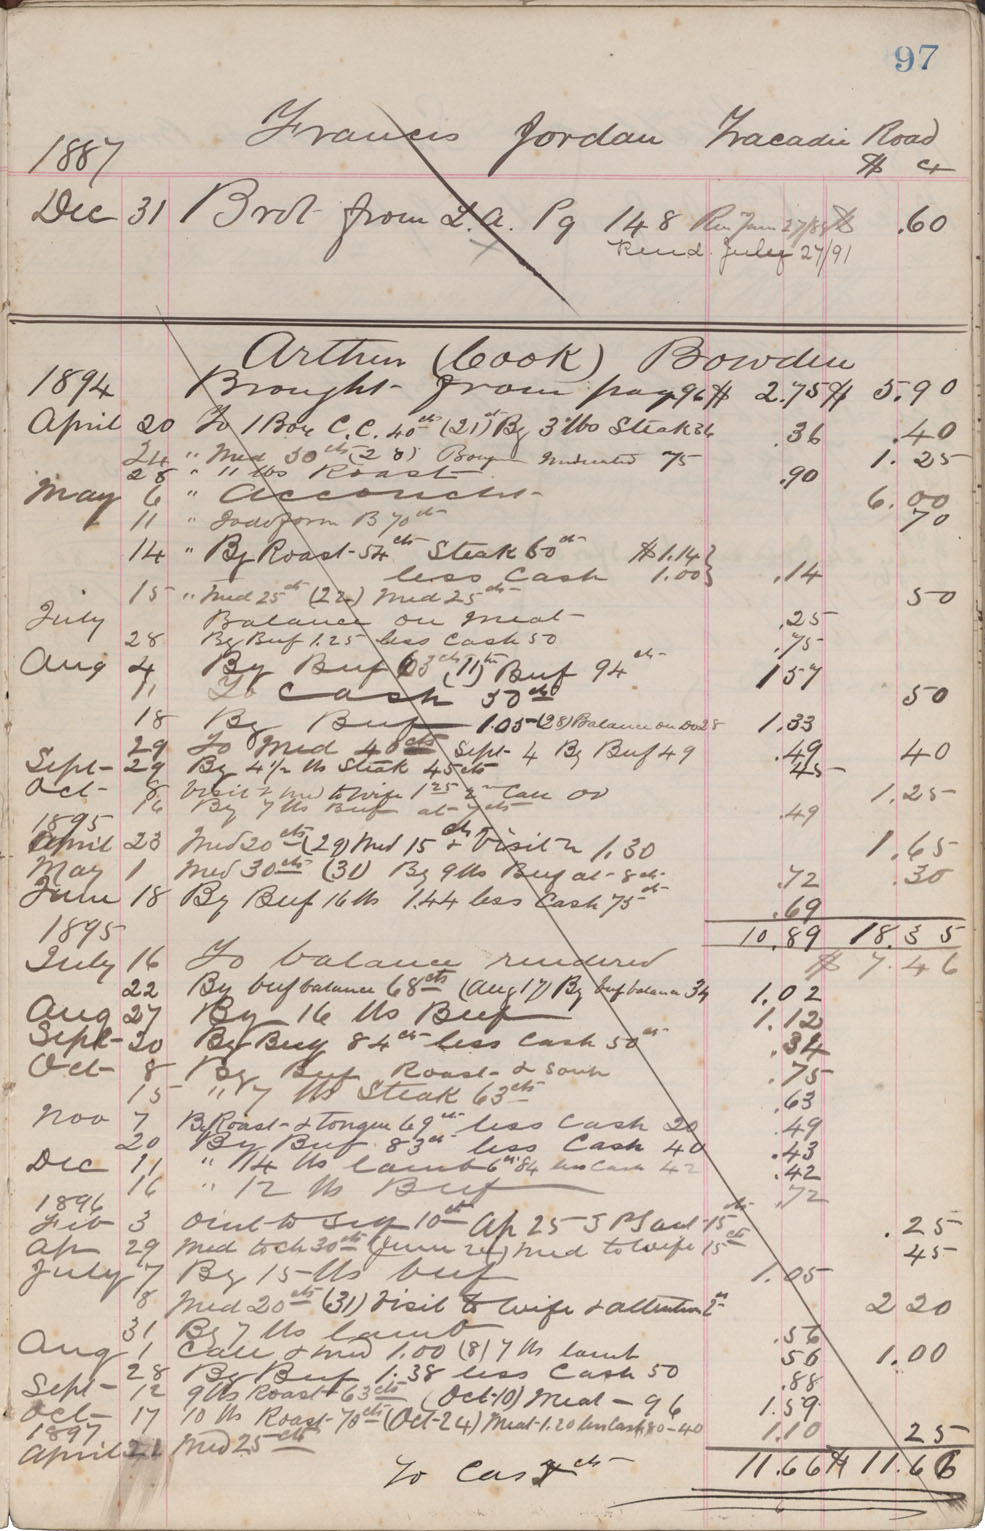 97
Francis Jordan Tracadie Road
1887 $ ct
Dec 31 Brot from L.A. Pg 148 Ren Jan 27/88 $ .60
Rend. July 27/91
Arthur (Cook) Bowden
1894 Brought from page 96 $ 2.75 $ 5.90
April 20 To 1 Box C.C. 40cts (21st) By 3 lbs Steak 36 .36 .40
24 " Med 50cts (28) 75 1.25
28 " 11 lbs Roast .90
May 6 " Accoucht 6.00
11 " Iodoform B 70cts 70
14 " By Roast 54cts Steak 60cts $1.14}
less Cash 1.00} .14
15 " Med 25cts (22) Med 25cts 50
July Balance on Meat .25
28 By Buf 1.25 less Cash 50 .75
Aug 4 By Buf 63cts (11th) Buf 94cts 1 57
11 To Cash 50cts 50
18 By Buf 1.05 (28) Balance on Do 28 1.33
29 To Med 40cts Sept 4 By Buf 49 .49 40
Sept 29 By 4 1/2 lbs Steak 45cts 45
Oct 8 Visit & Med to Wife 1 25 Call 00 1.25
16 By 7 lbs Buf at 7cts .49
1895
April 23 Med 20cts (29) Med 15cts & Visit 1.30 1.65
May 1 Med 30cts (31) By 9 lbs Buf at 8cts .72 .30
June 18 By Buf 16 lbs 1.44 less Cash 75cts .69
1895 10.89 18.35
July 16 To balance rendered $ 7.46
22 By buf balance 68cts (Aug 17) By buf balance 34 1.02
Aug 27 By 16 lbs Buf 1.12
Sept 20 By Buf 84cts less Cash 50cts .34
Oct 8 By Buf Roast & Soup .75
15 " 7 lbs Steak 63cts .63
Nov 7 By Roast & tongue 69cts less Cash 20 .49
20 By Buf 83cts less Cash 40 .43
Dec 11 " 14 lbs lamb 6cts 84 less Cash 42 .42
16 " 12 lbs Buf .72
1896
Feb 3 Oint to 10cts Ap 25 15cts .25
Ap 29 Med to ch 30cts (June 24) Med to wife 15cts 45
July 7 By 15 lbs buf 1.05
8 Med 20cts (31) Visit to Wife & attention 2 2 20
31 By 7 lbs lamb .56
Aug 1 Call & Med 1.00 (8) 7 lbs lamb 56 1.00
28 By Buf 1.38 less Cash 50 .88
Sept 12 9 lbs Roast 63cts (Oct 10) Meat - 96 1.59
Oct 17 10 lbs Roast 70cts (Oct 24) Meat 1.20 less Cash 80 - 40 1.10
1897 25
April 21 Med 25cts
To Cash cts 11.66 $ 11.66